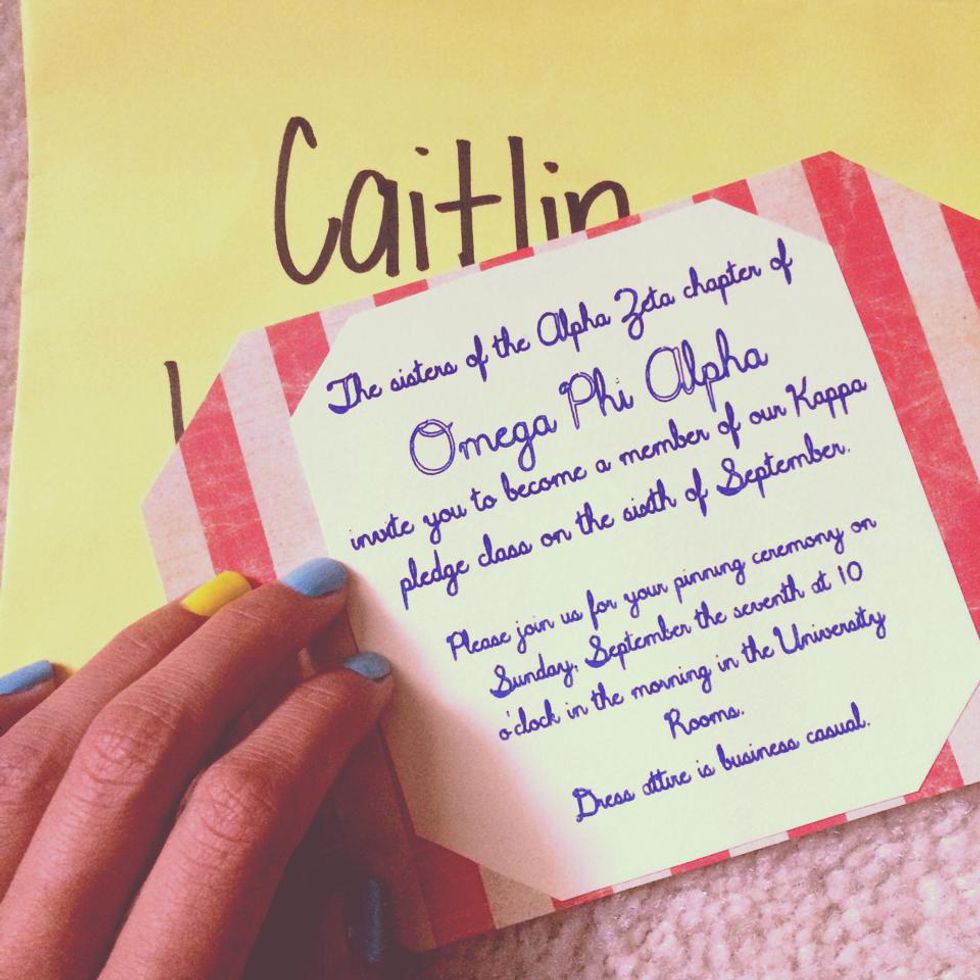 Caitlin
The sisters of the Alpha Zeta chapter of
Omega Phi Alpha
invite you to become a member of our Kappa
pledge class on the sixth of September.
Please join us for your pinning ceremony on
Sunday, September the seventh at 10
o'clock in the morning in the University
Rooms.
Dress attire is business casual.